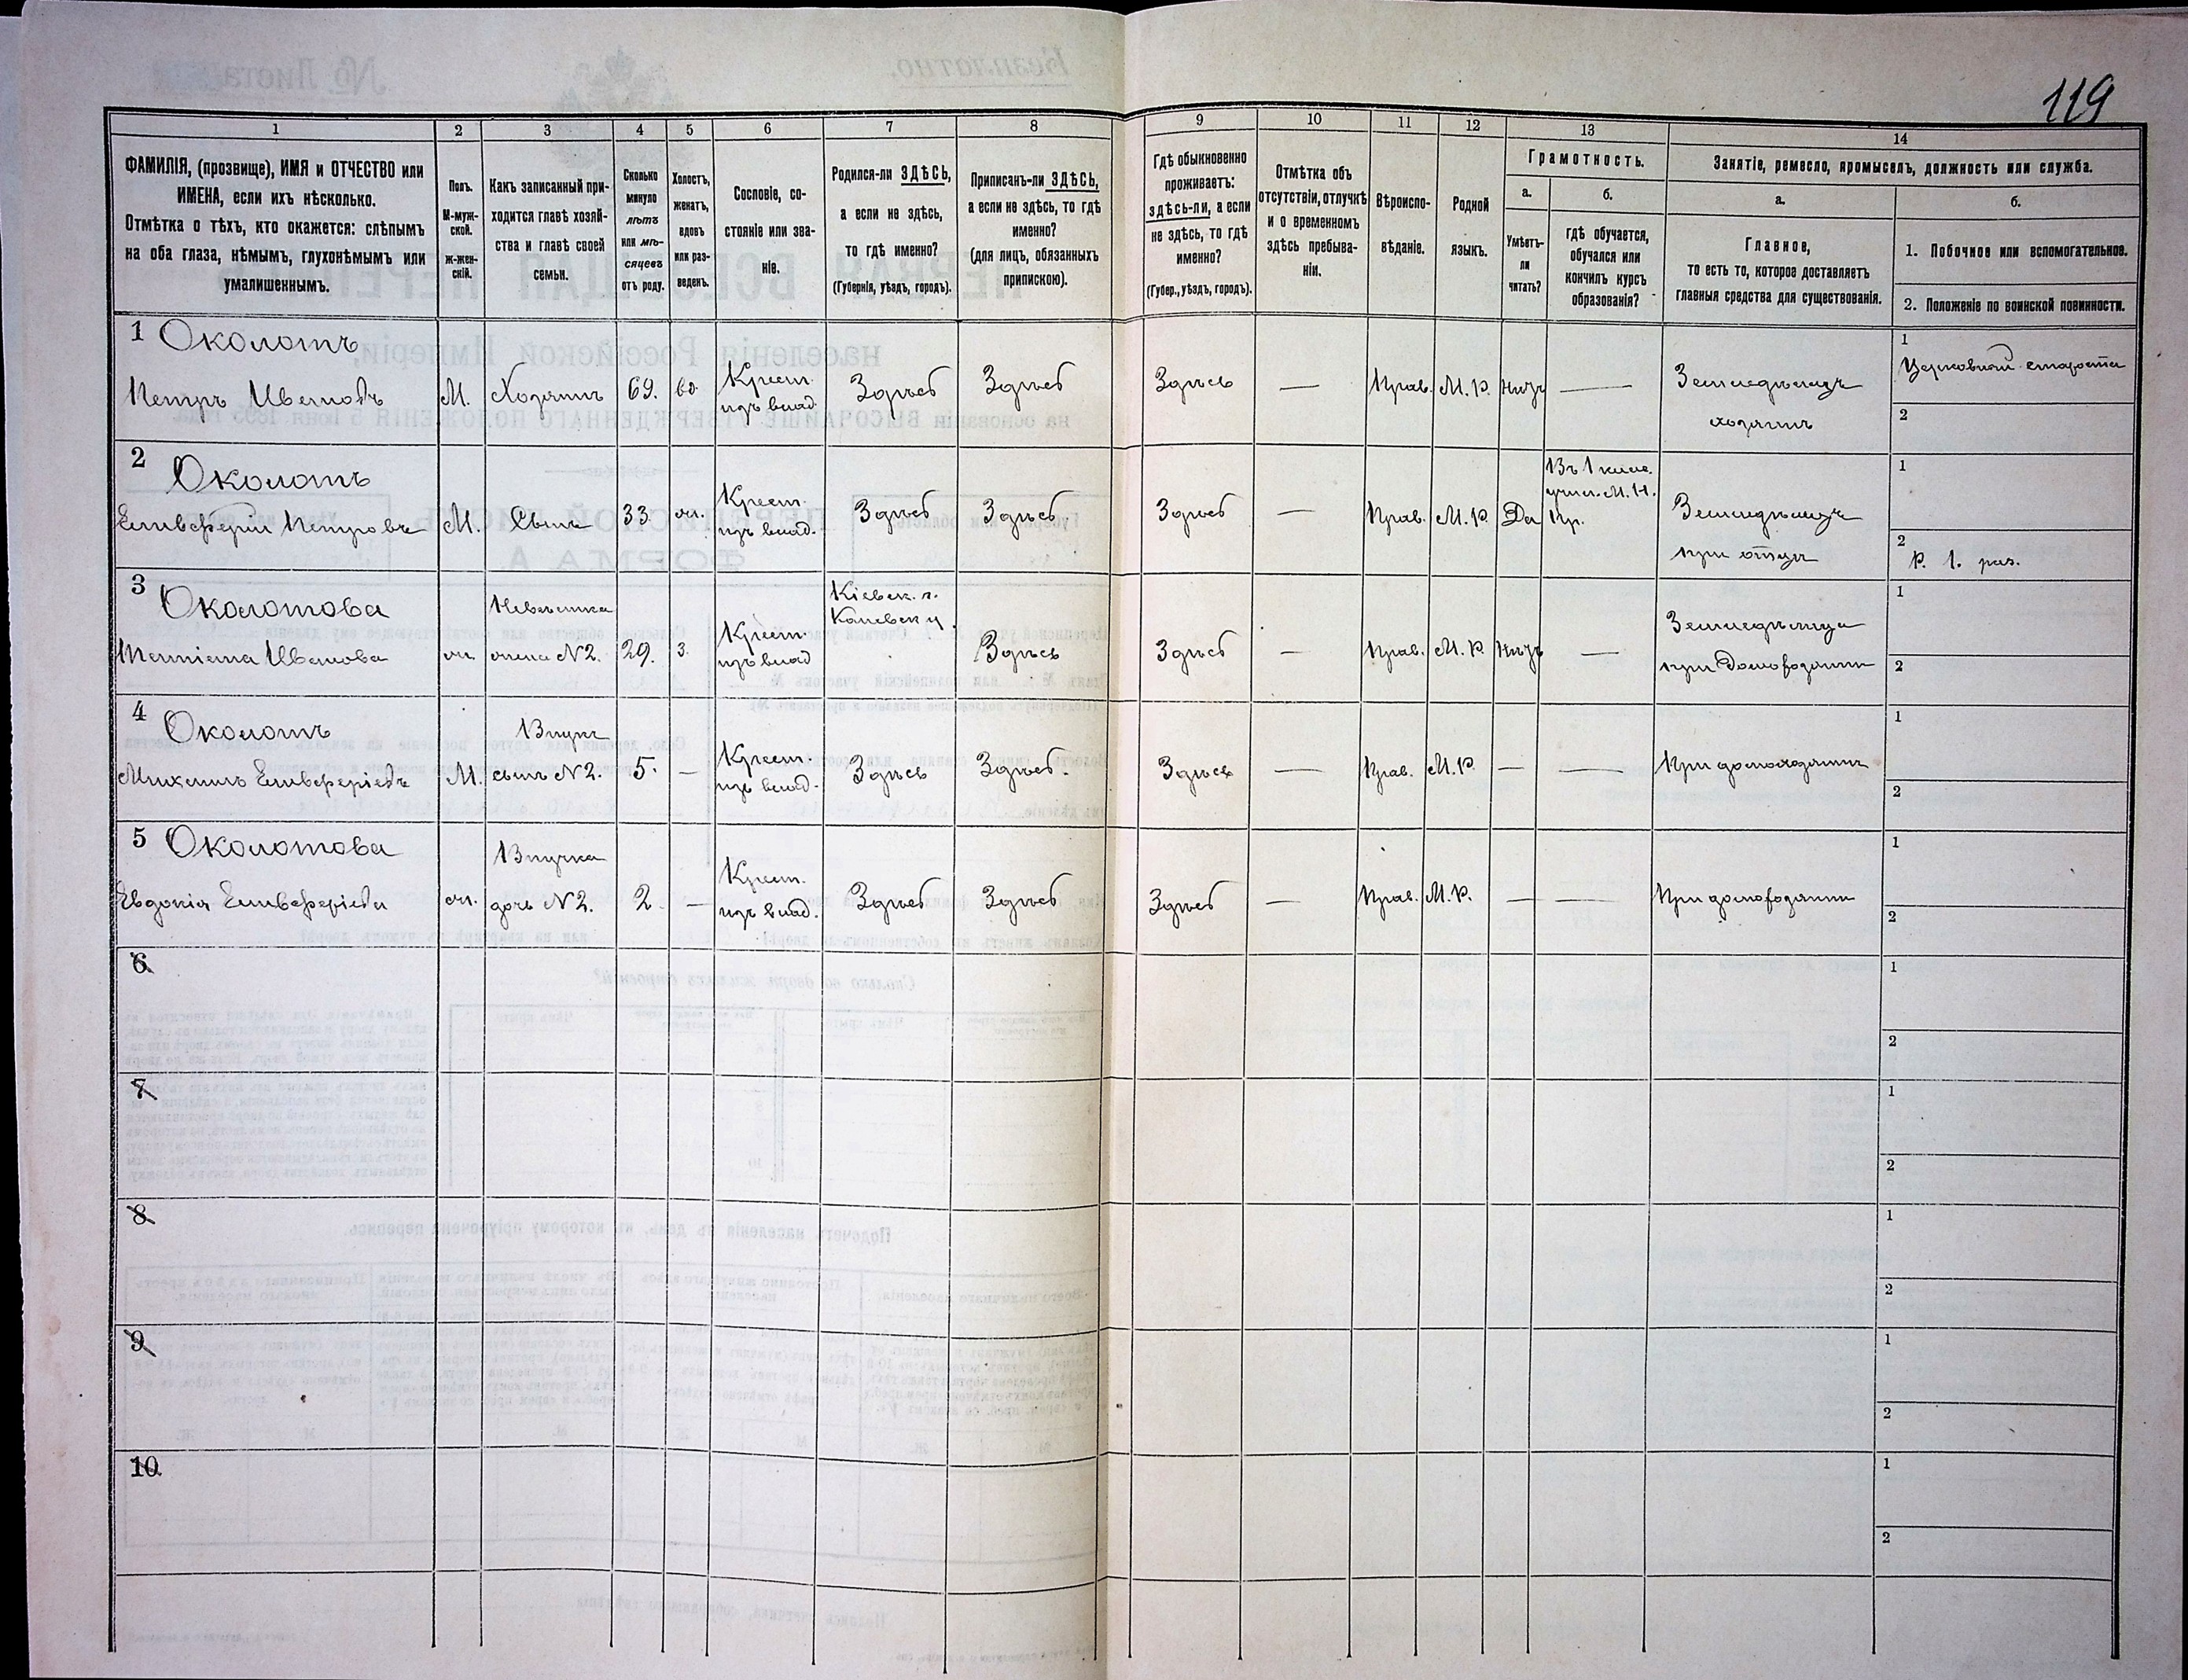 119
1 2 3 4 5 6 7 8 9 10 11 12 13 14
ФАМИЛІЯ, (прозвище), ИМЯ и ОТЧЕСТВО или
ИМЕНА, если ихъ нѣсколько.
Отмѣтка о тѣхъ, кто окажется: слѣпымъ
на оба глаза, нѣмымъ, глухонѣмымъ или
умалишеннымъ.
Полъ.
М-муж-
ской.
Ж-жен-
скій.
Какъ записанный при-
ходится главѣ хозяй-
ства и главѣ своей
семьи.
Сколько
минуло
лѣтъ
или мѣ-
сяцевъ
отъ роду.
Холостъ,
женатъ,
вдовъ
или раз-
веденъ.
Сословіе, со-
стояніе или зва-
ніе.
Родился-ли ЗДѢСЬ,
а если не здѣсь,
то гдѣ именно?
(Губернія, уѣздъ, городъ).
Приписанъ-ли ЗДѢСЬ,
а если не здѣсь, то гдѣ
именно?
(для лицъ, обязанныхъ
припискою).
Гдѣ обыкновенно
проживаетъ:
здѣсь-ли, а если
не здѣсь, то гдѣ
именно?
(Губер., уѣздъ, городъ).
Отмѣтка объ
отсутствіи, отлучкѣ
и о временномъ
здѣсь пребыва-
ніи.
Вѣроиспо-
вѣданіе.
Родной
языкъ.
Грамотность.
а.
Умѣетъ-
ли
читать?
б.
гдѣ обучается,
обучался или
кончилъ курсъ
образованія?
Занятіе, ремесло, промыселъ, должность или служба.
а.
Главное,
то есть то, которое доставляетъ
главныя средства для существованія.
б.
1. Побочное или вспомогательное.
2. Положеніе по воинской повинности.
1 Околотъ
Петръ Ивановъ
М.
Хозяинъ
69.
вд.
Крест.
изъ влад.
Здѣсь
Здѣсь
Здѣсь
—
Прав.
М. Р.
Нѣтъ
—
Земледѣлецъ
хозяинъ
1
Церковный староста
2
2 Околотъ
Елевферій Петровъ
М.
Сынъ
33
Крест.
изъ влад.
Здѣсь
Здѣсь
Здѣсь
—
Прав.
М. Р.
Да
Въ 1 класс.
учил. М. Н.
Пр.
Земледѣлецъ
при отцѣ
1
2
Р. 1. раз.
3 Околотова
Ивановa
Невѣстка
жена №2.
29.
З.
Крест.
изъ влад
Кіевск. г.
Каневск у.
Здѣсь
Здѣсь
—
Прав.
М. Р.
Нѣтъ
—
Земледѣлица
при домохозяинѣ
1
2
4 Околотъ
Михаилъ Елевферіевъ
М.
Внукъ
сынъ №2.
5.
—
Крест.
изъ влад.
Здѣсь
Здѣсь.
Здѣсь
—
Прав.
М. Р.
—
—
При домохозяинѣ
1
2
5 Околотова
Евдокія Елевферіева
ж.
Внучка
дочь №2.
2
—
Крест.
изъ влад.
Здѣсь
Здѣсь
Здѣсь
—
Прав.
М. Р.
—
—
При домохозяинѣ
1
2
6
1
2
7
1
2
8
1
2
9
1
2
10
1
2